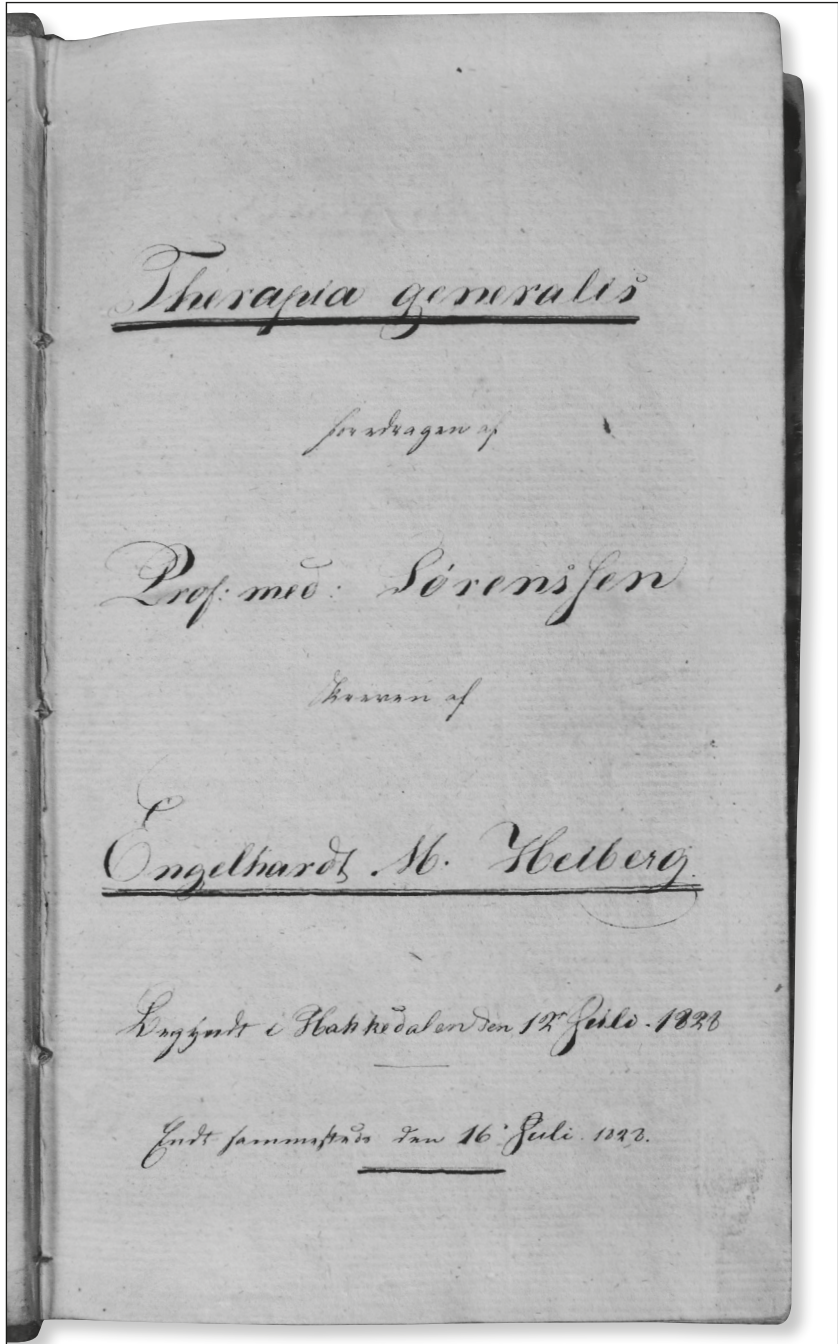 Therapia generalis
foredragen af
Prof: med: Sørenssen
skreven af
Engelhardt M. Heiberg.
Begyndt i Hakkedalen den 12 Juli. 1828
Endt sammesteds den 16. Juli. 1828.